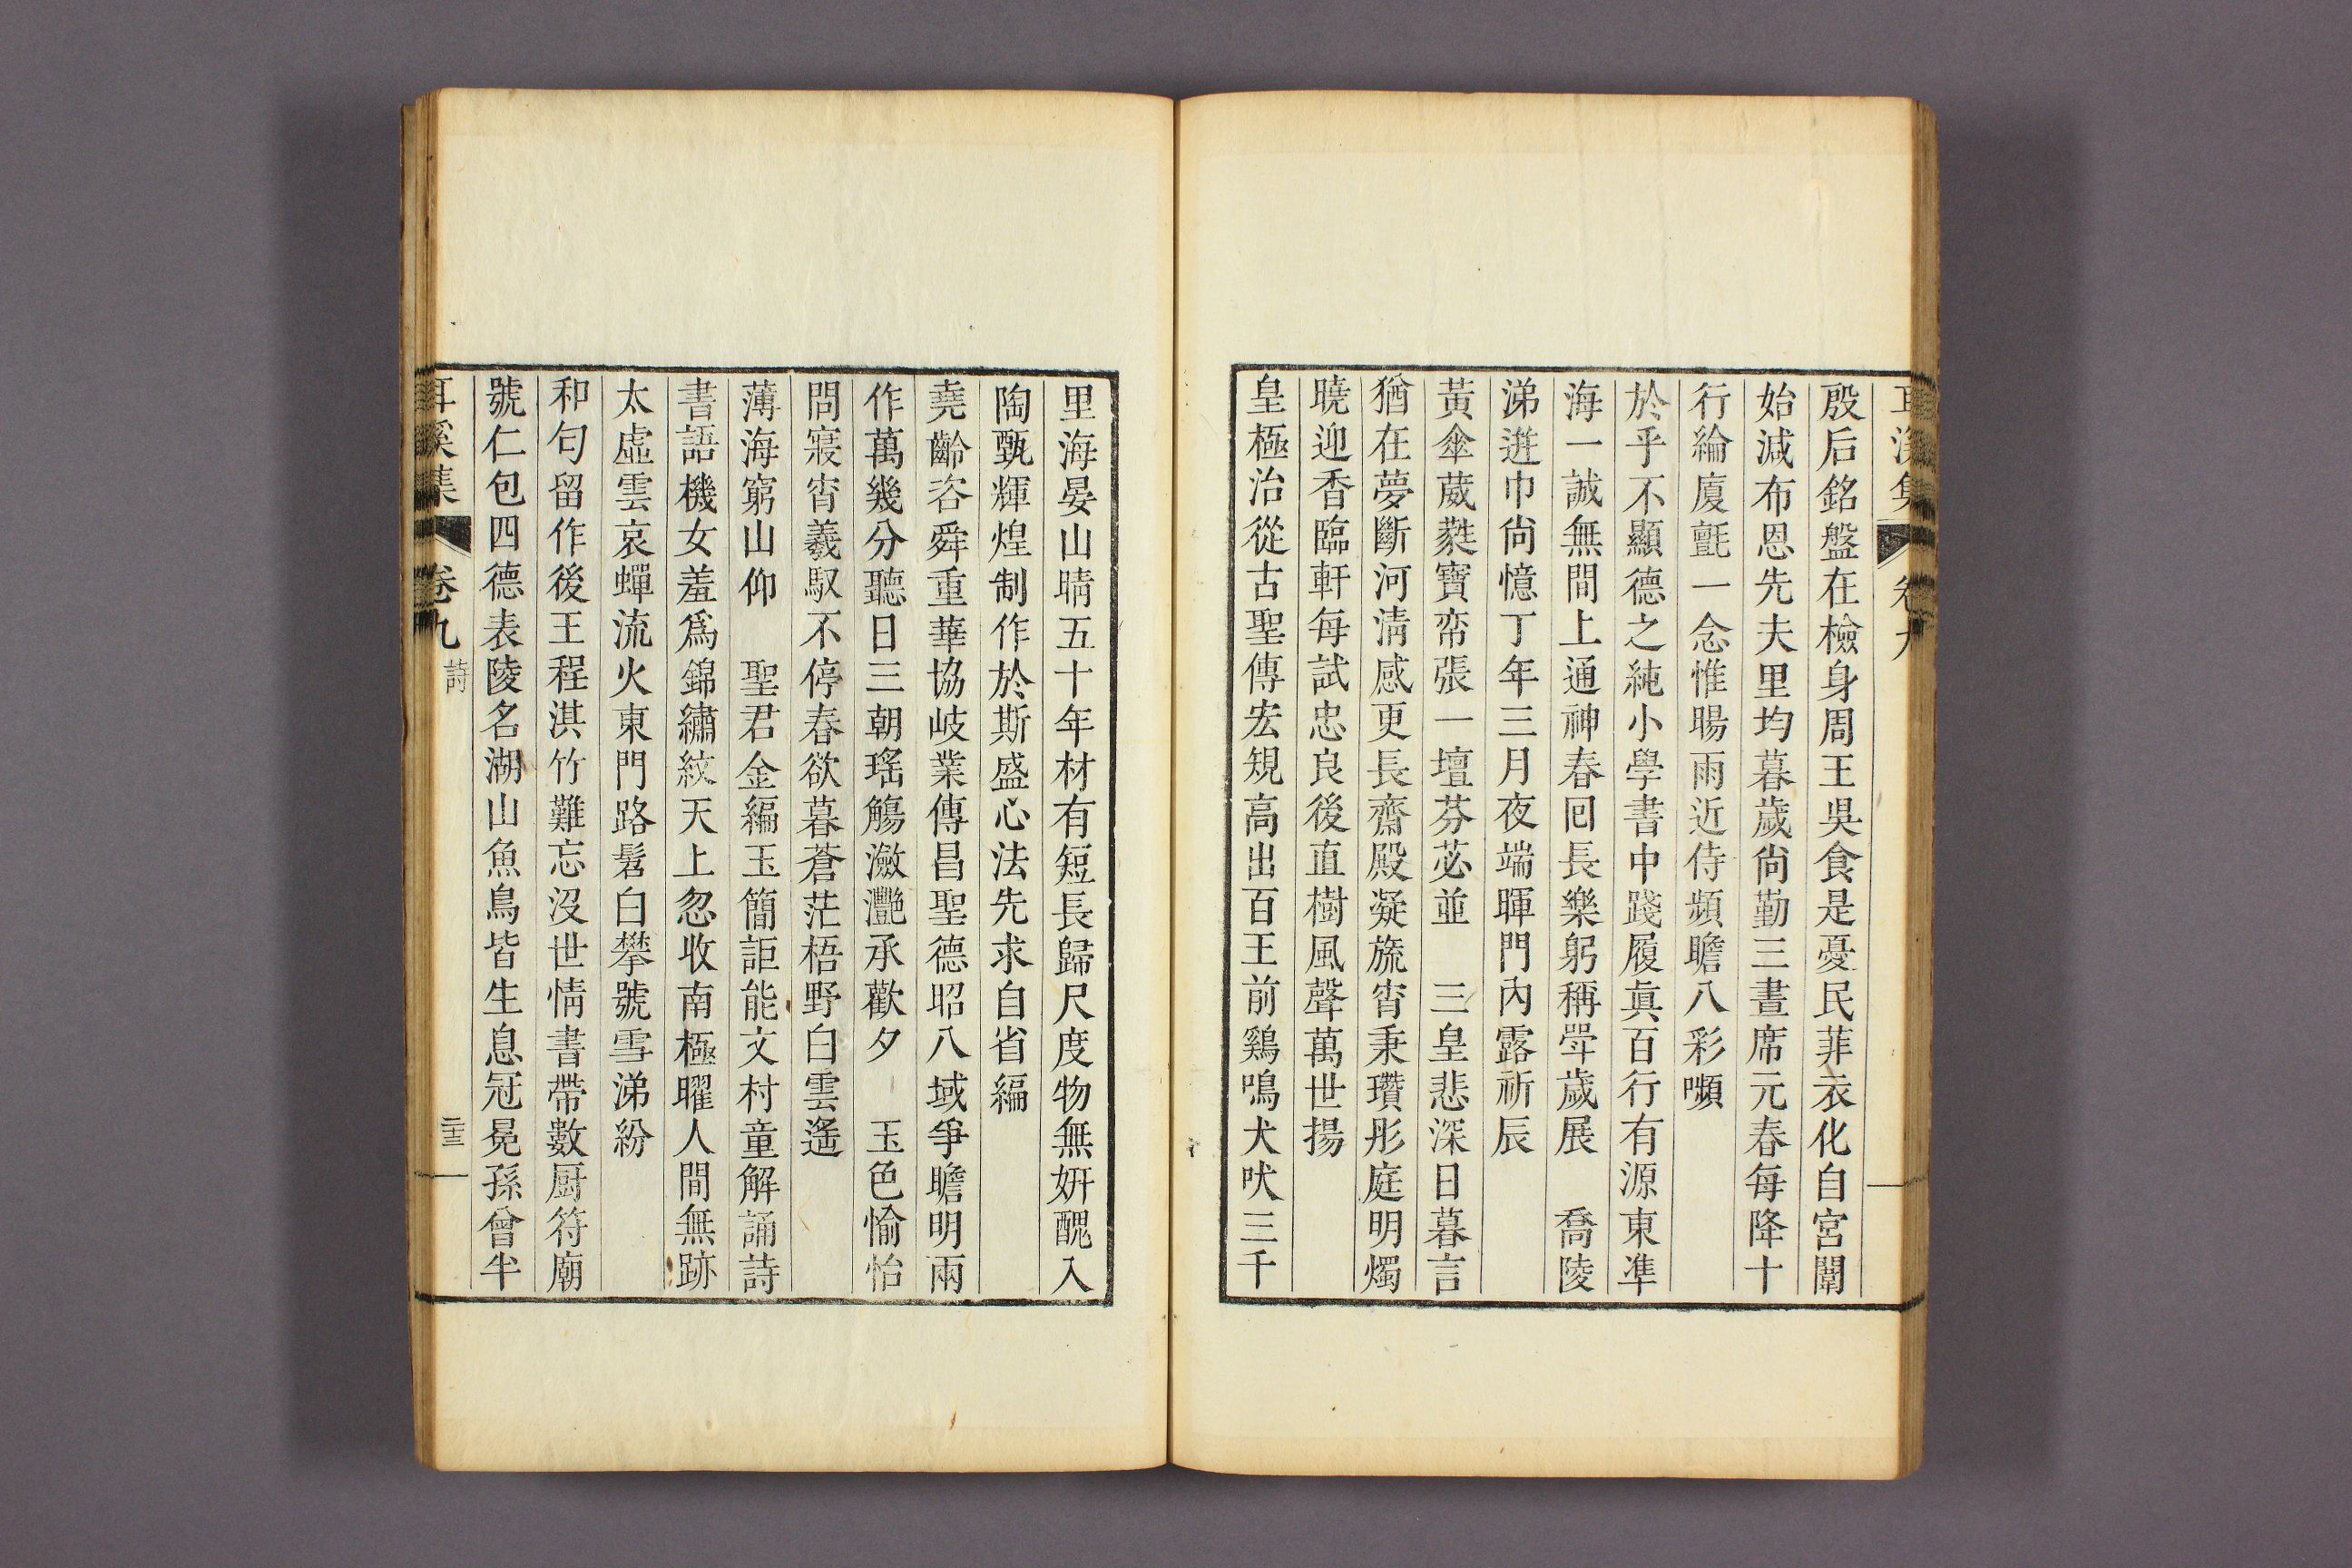 耳溪集 卷九
殷后銘盤在檢身周王吳食是憂民菲衣化自宮闈
始減布恩先夫里均暮歲尙勤三晝席元春每降十
行綸廈氈一念惟暘雨近侍頻瞻八彩嚬
於乎不顯德之純小學書中踐履眞百行有源東準
海一誠無間上通神春回長樂躬稱斝歲展 喬陵
涕迸巾尙憶丁年三月夜端暉門內露祈辰
黃傘葳蕤寶帟張一壇芬苾並 三皇悲深日暮言
猶在夢斷河淸感更長齋殿凝旒宵秉瓚彤庭明燭
曉迎香臨軒每試忠良後直樹風聲萬世揚
皇極治從古聖傳宏規高出百王前鷄鳴犬吠三千
里海晏山晴五十年材有短長歸尺度物無姸醜入
陶甄輝煌制作於斯盛心法先求自省編
堯齡咨舜重華協岐業傳昌聖德昭八域爭瞻明兩
作萬幾分聽日三朝瑤觴瀲灩承歡夕 玉色愉怡
問寢宵羲馭不停春欲暮蒼茫梧野白雲遙
薄海窮山仰 聖君金編玉簡詎能文村童解誦詩
書語機女羞爲錦繡紋天上忽收南極曜人間無跡
太虛雲哀蟬流火東門路髫白攀號雪涕紛
和句留作後王程淇竹難忘沒世情書帶數厨符廟
號仁包四德表陵名湖山魚鳥皆生息冠冕孫曾半
耳溪集 卷九 詩 二十三